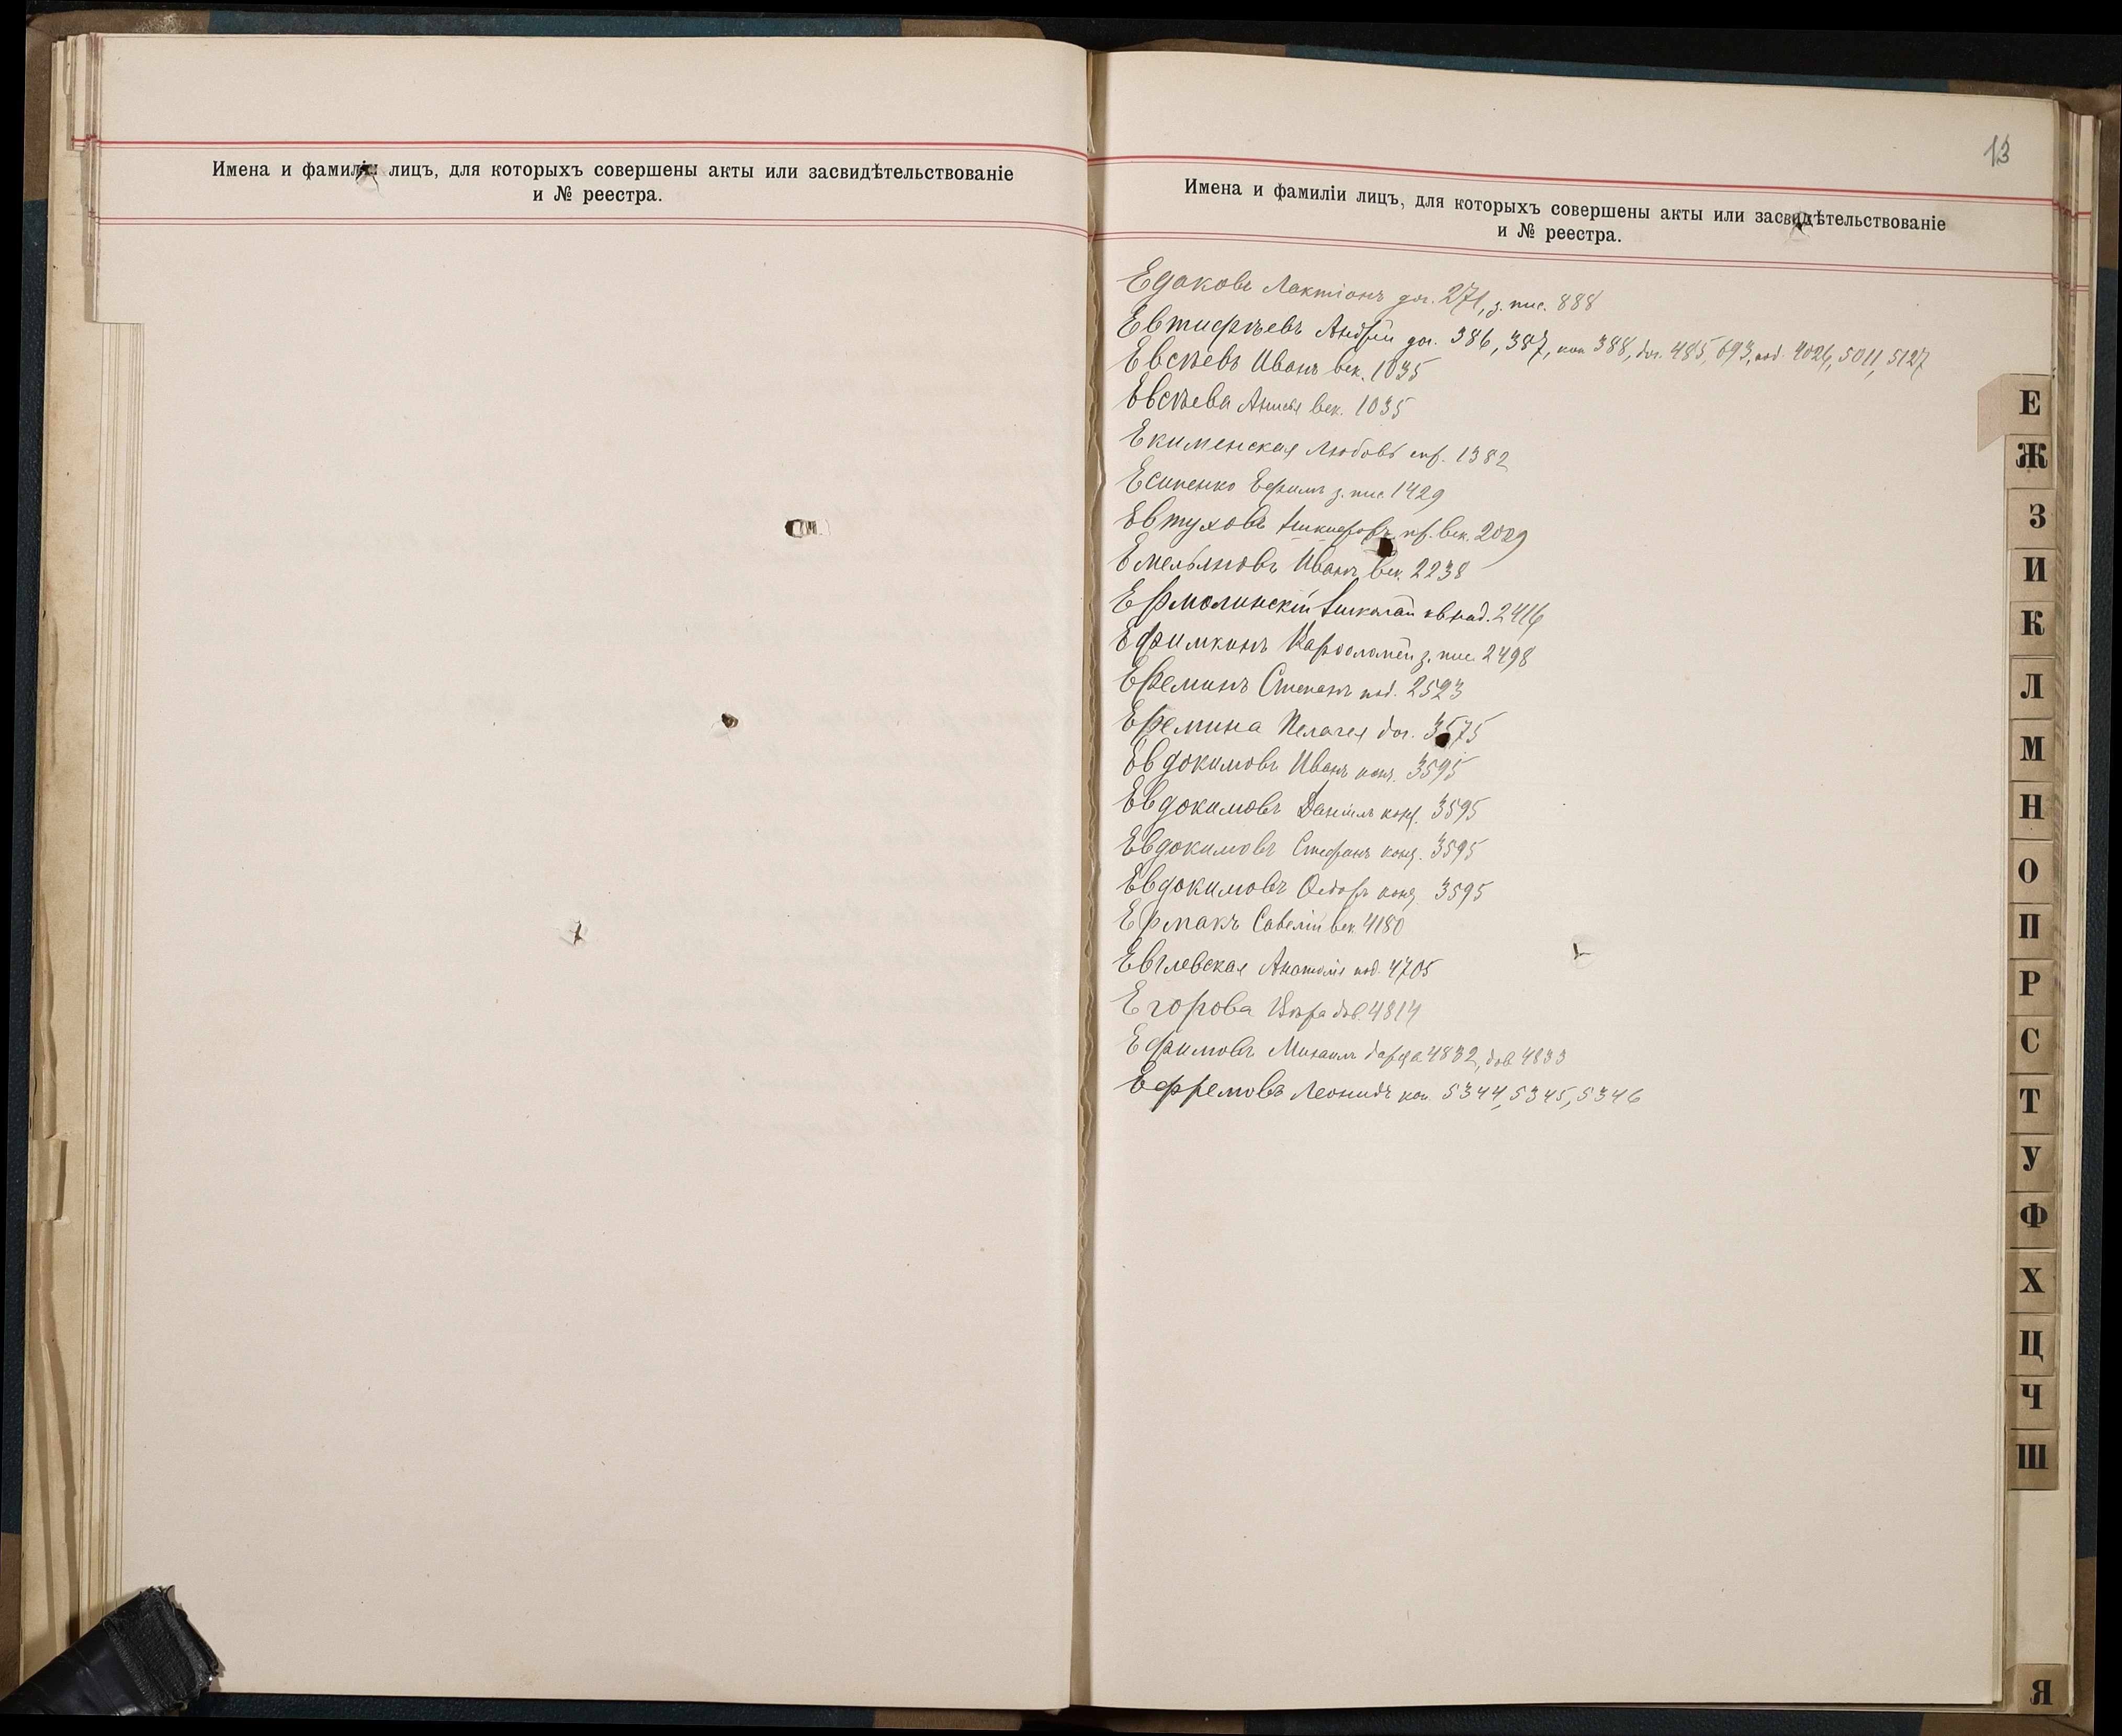 Имена и фамиліи лицъ, для которыхъ совершены акты или засвидѣтельствованіе
и № реестра.
13
Имена и фамиліи лицъ, для которыхъ совершены акты или засвидѣтельствованіе
и № реестра.
Едаковъ Лактіонъ дог. 271, з. пис. 888
Евтифѣевъ Андрей дог. 386, 387, коп 388, дог. 485, 693, под. 4026, 5011, 5127
Евсѣевъ Иванъ век. 1035
Евсѣева Анисья век. 1035
Екименская Любовь 1382
Есипенко Ефимъ з. пис. 1429
Евтуховъ Никифоръ пр. век. 2029
Емельяновъ Иванъ век. 2238
Ермолинскій Николай 2416
Ефимкинъ Варфоломей з. пис. 2498
Ереминъ Степанъ под. 2523
Еремина Пелагея дог. 3575
Евдокимовъ Иванъ 3595
Евдокимовъ Даніилъ 3595
Евдокимовъ Стефанъ 3595
Евдокимовъ Ѳедоръ 3595
Ермакъ Савелій век. 4180
Евглевская Анатолія под. 4705
Егорова Вѣра дов. 4814
Ефимовъ Михаилъ 4832, дов 4833
Ефремовъ Леонидъ коп. 5344, 5345, 5346
Е
Ж
З
И
К
Л
М
Н
О
П
Р
С
Т
У
Ф
Х
Ц
Ч
Ш
Я